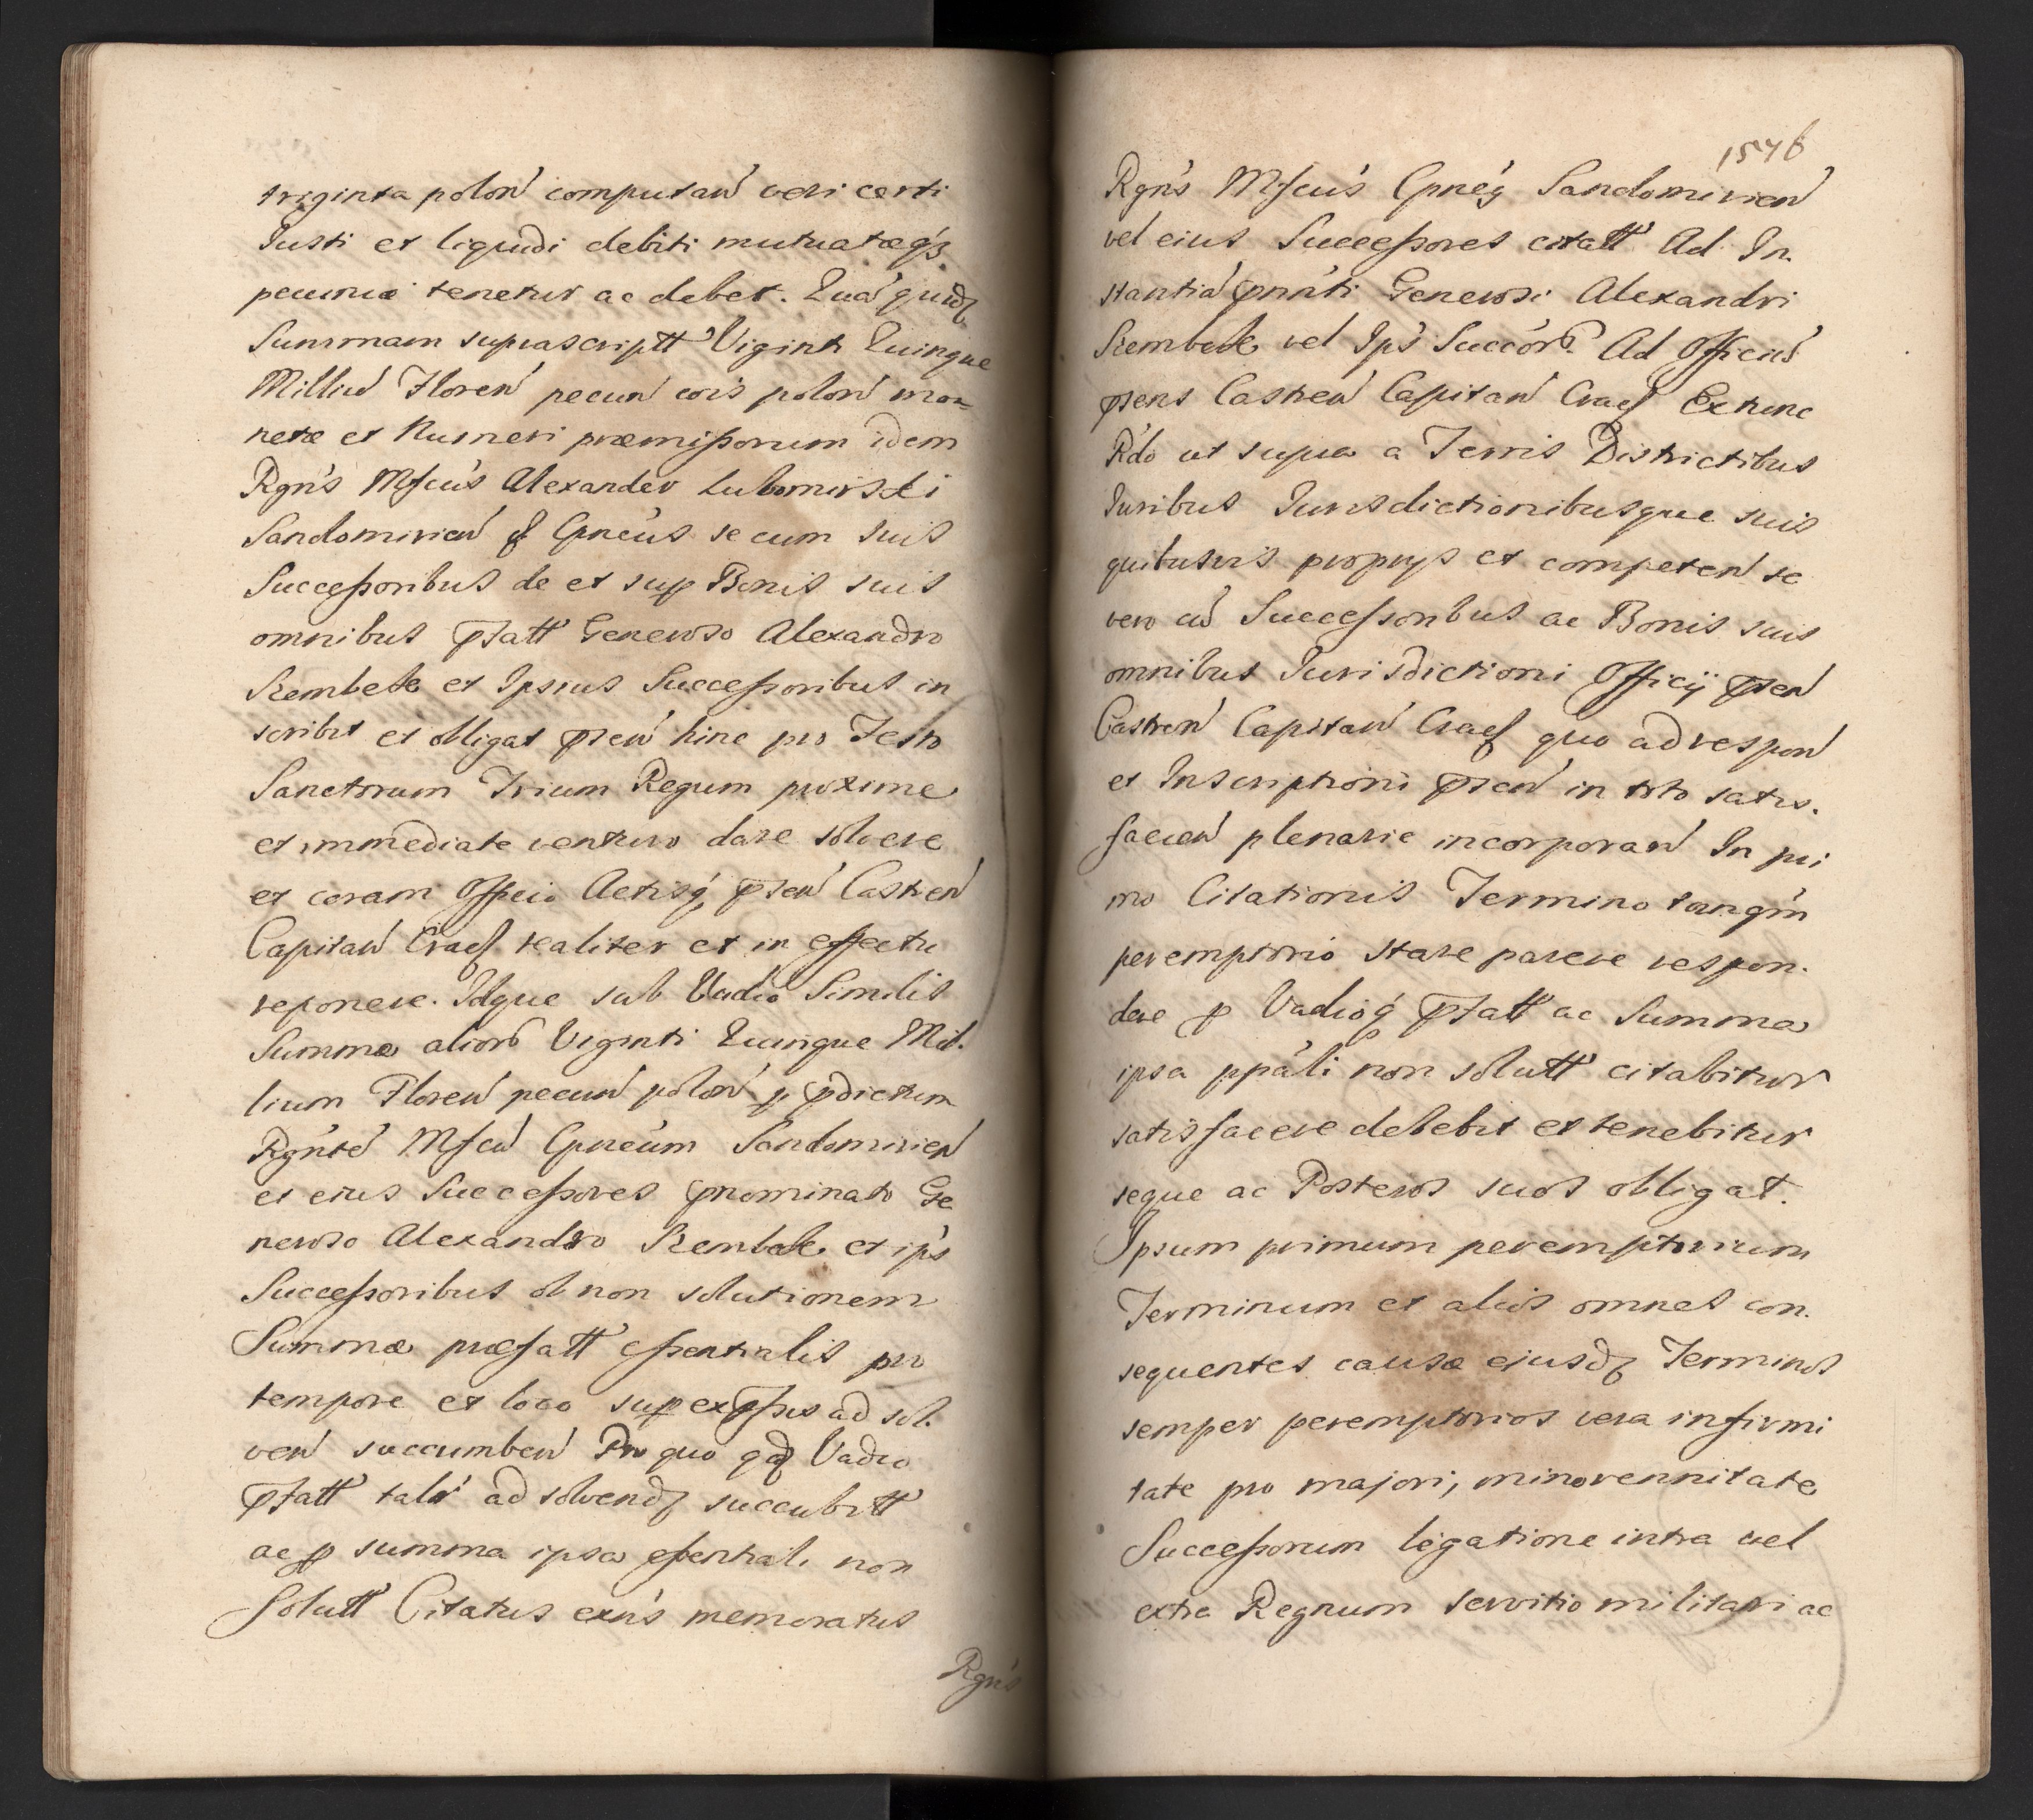 triginta polon̄ computan̄ veri certi
Iusti et liquidi debiti mutuatæqȝ
pecuniæ tenetur ac debet. Quá quidȝ
Summam suprascriptt Viginti Quinque
Milliū Floren̄ pecun̄ cois polon̄ mo=
netæ et Numeri præmißorum idem
Rgn̄s Mfcus Alexander Lubomirski
Sandomirien̄ Gn̄eus se cum suis
Succeßoribus de et sup Bonis suis
omnibus pfatt Generoso Alexandro
Rembek et Ipsius Succeßoribus in
scribit et obligat psen̄ hinc pro Festo
Sanctorum Trium Regum proxime
et immediate venturo dare solvere
et coram Officio Actisqȝ psen̄ Castren̄
Capitan̄ Crac realiter et in effectu
reponere. Idque sub Vadio Similis
Summæ alior Viginti Quinque Mil.
lium Floren̄ pecun̄ polon̄ p pdictum
Rgn̄tē Mfcū Gn̄eum Sandomirien̄
et eius Succeßores pnominato Ge
neroso Alexandro Rembek et ip̄s
Succeßoribus ob non solutionem
Summæ præfatt eßentialis pro
tempore et loco sup expßis ad sol.
ven̄ succumben̄ Pro quo qdȝ Vadio
pfatt talr̄ ad solvendȝ succubitt
ac p summa ipsa eßentiali non
Solutt Citatus exn̄s memoratus
Rgn̄s

1546
Rgn̄s Mfcus Gn̄eqȝ Sandomirien̄
vel eius Succeßores citatt Ad In.
stantiā pnn̄ti Generosi Alexandri
Rembek vel Ips̄ Succor Ad Officiū
psens Castren̄ Capitan̄ Crac Extunc
Rdo ut supra a Terris Districtibus
Iuribus Iurisdictionibusque suis
quibusvis proprys et competen̄ se
vero cū Succeßoribus ac Bonis suis
omnibus Iurisdictioni Officÿ psen̄
Castren̄ Capitan̄ Crac quo ad respon̄
et Inscriptioni psen̄ in toto satis.
facien̄ plenarie incorporan̄ In pri
mo Citationis Termino tanqm̄
peremptorio stare parere respon.
dere p Vadioqȝ pfatt ac Summa
ipsa ppāli non solutt citabitur
satisfacere debebit et tenebitur
seque ac Posteros suos obligat.
Ipsum primum peremptorium
Terminum et alios omnes con.
sequentes causæ eiusdȝ Terminos
semper peremptorios vera infirmi
tate pro majori, minorennitate
Succeßorum legatione intra vel
extra Regnum servitio militari ac